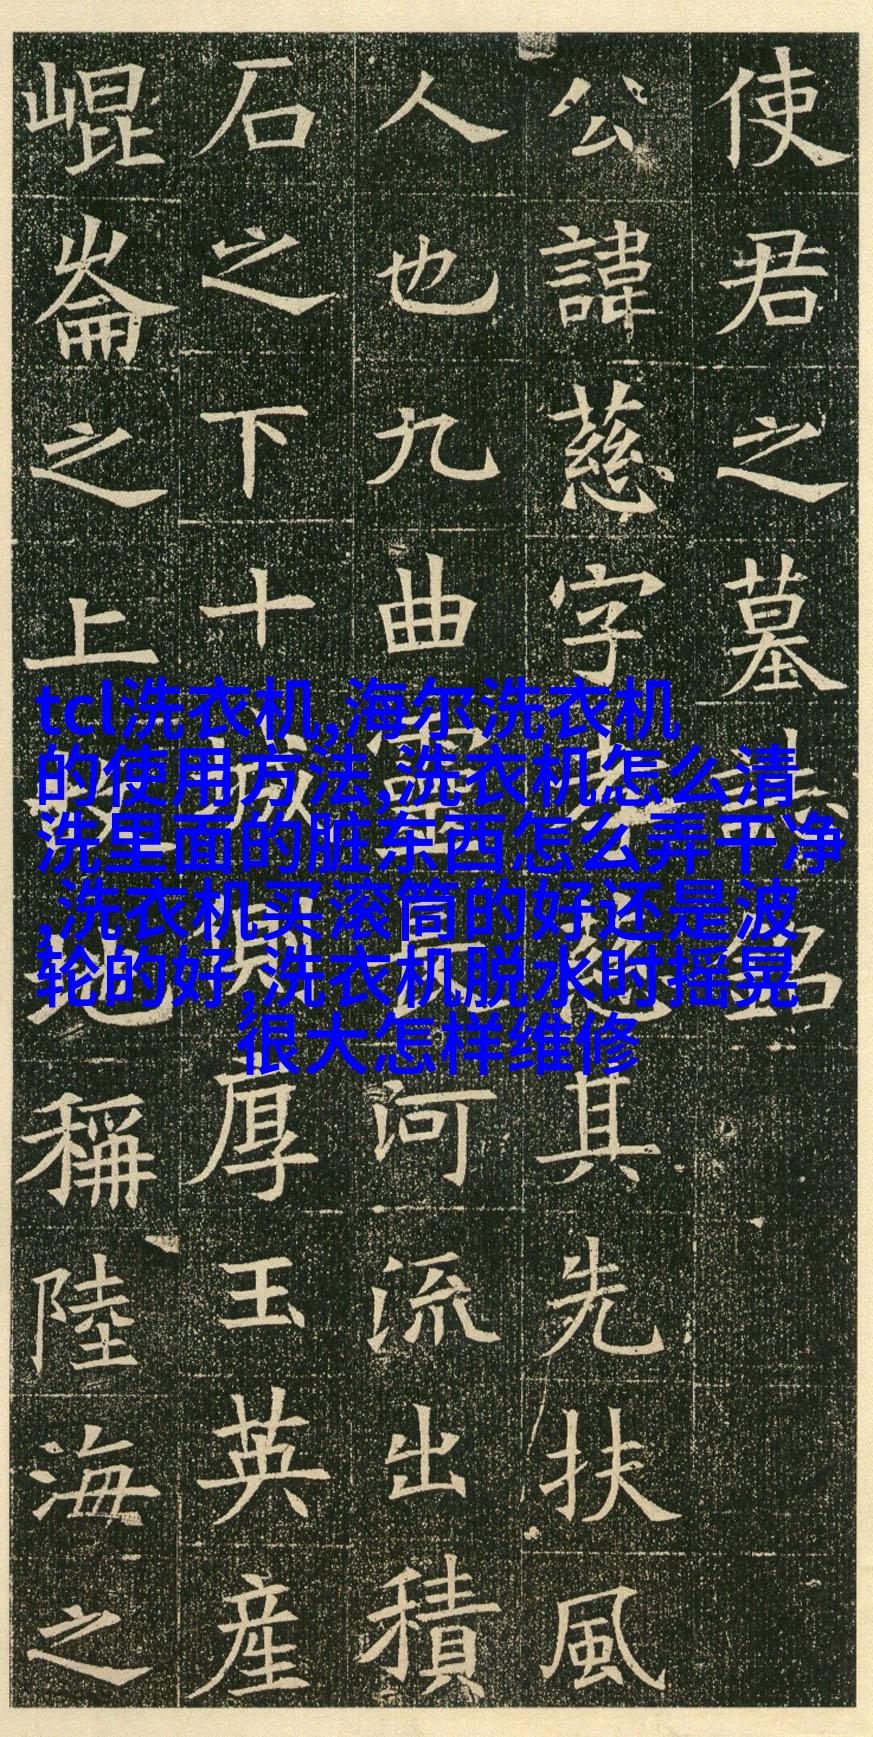 使君之墓誌銘
公諱慈字其先扶風
人也九曲河流出積
石之下十城厚玉英産
崐崘之上地稱陸海之
tcl洗衣机,海尔洗衣机
的使用方法,洗衣机怎么清
洗里面的脏东西怎么弄干净
,洗衣机买滚筒的好还是波
轮的好,洗衣机脱水时摇晃
很大怎样维修